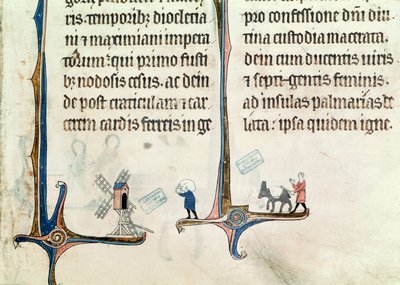 ris. temporibꝫ diocletia
ni ⁊ maximiani impera
torum: qui primo fusti
bꝫ nodosis cesus. ac dein
de post craticulam ⁊ car
cerem cardis ferreis in ge
pro confessione dn̄i diu
tina custodia macerata.
dein cum ducentis uiris
⁊ septi-gentis feminis.
ad insulas palmarias de
lata: ipsa quidem igne.